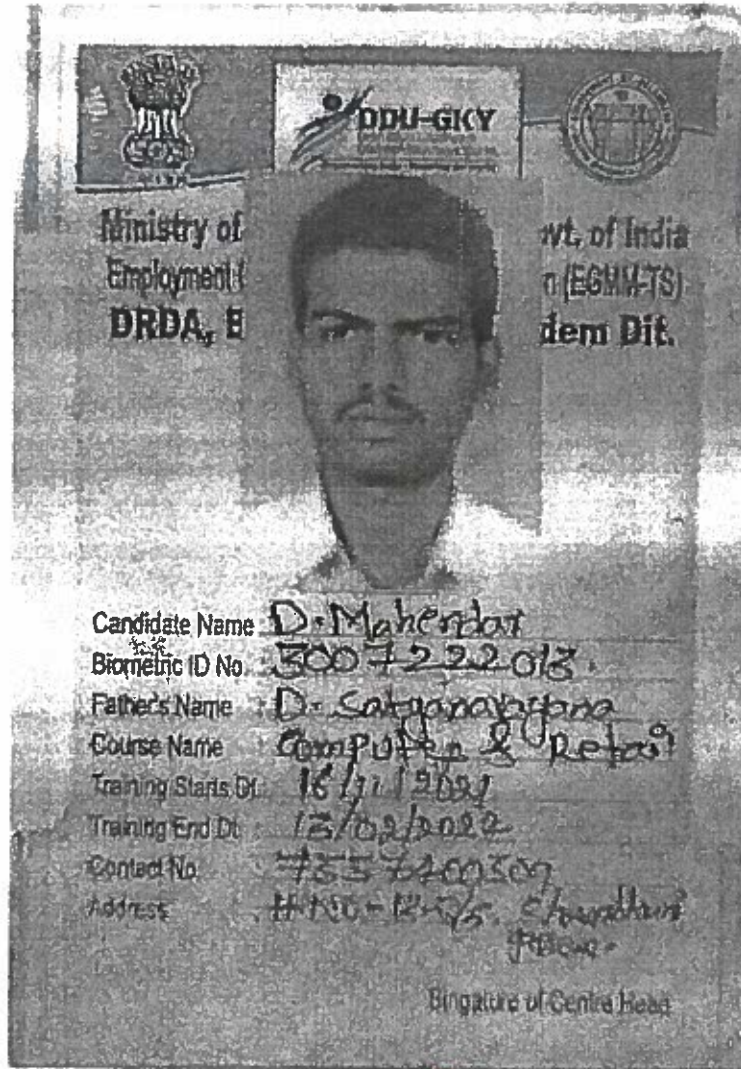 DDU-GKY
Ministry of
vt. of India
Employment
n (EGMM-TS)
DRDA, B
dem Dit.
Candidate Name D. Mahendar
Biometric ID No 3007222013
Father's Name : D. Satyanarayana
Course Name : Computer & Retail
Training Starts Dt 16/11/2021
Training End Dt : 13/02/2022
Contact No
Address H.No-
Singature of Centre Head